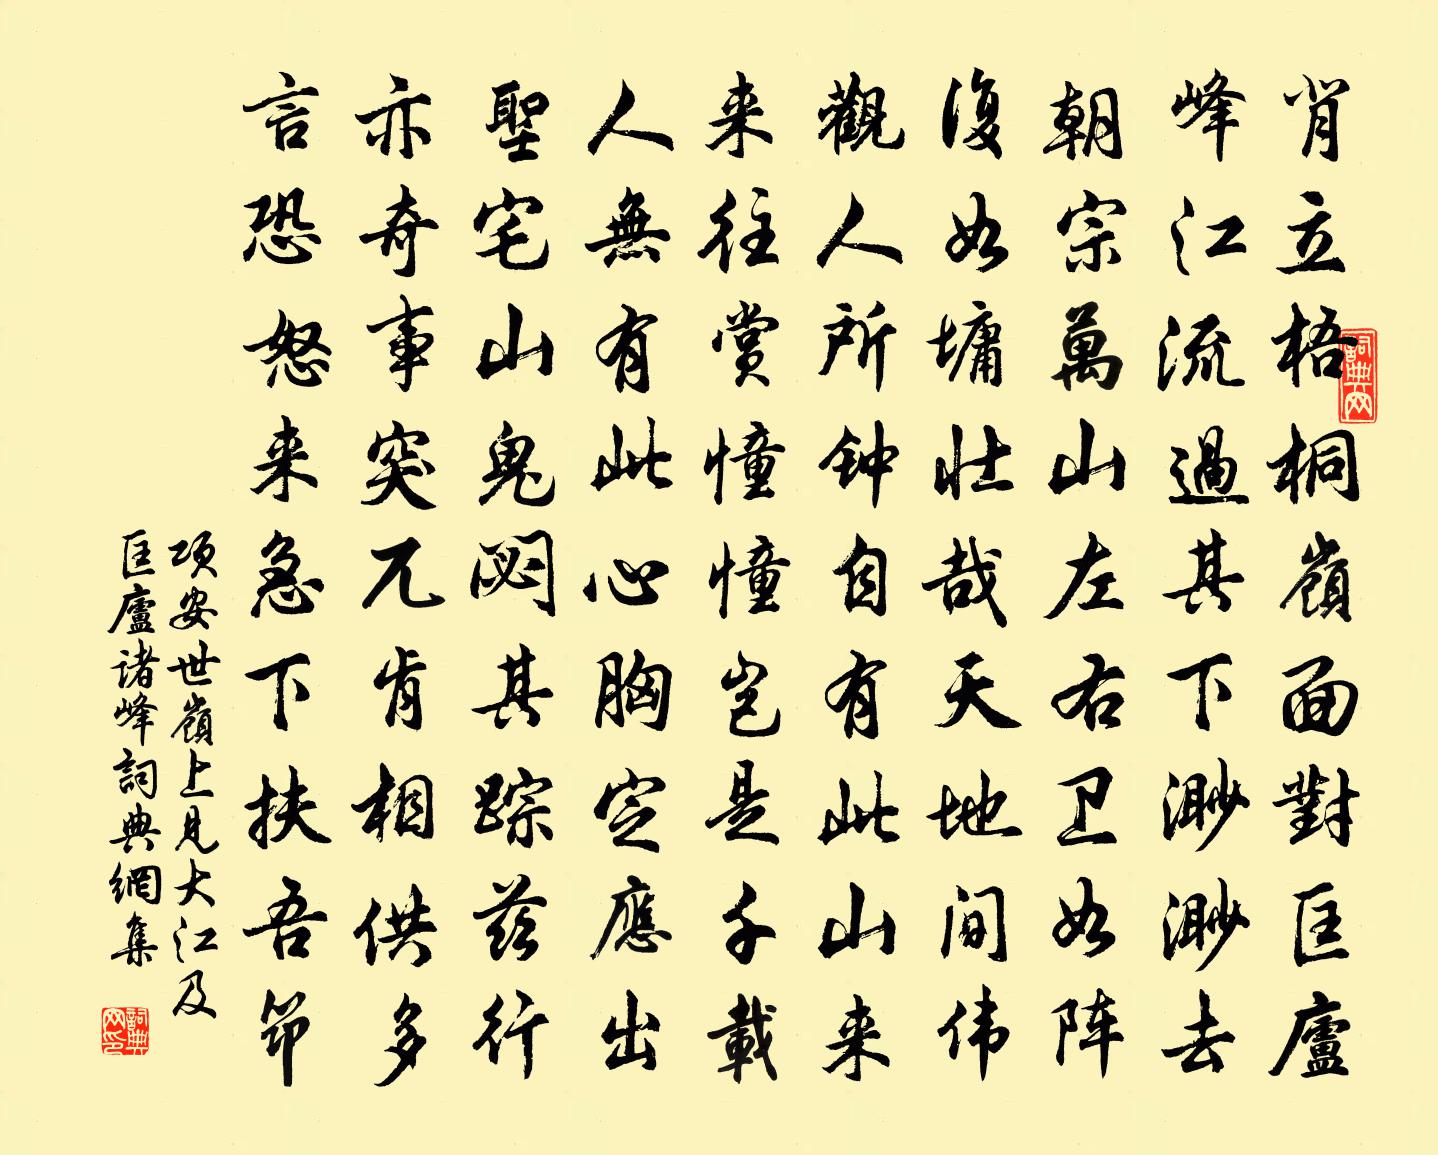 背立梧桐嶺面對匡廬
峰江流過其下渺渺去
朝宗萬山左右卫如阵
復如墉壯哉天地间伟
觀人所钟自有此山来
来往賞憧憧豈是千載
人無有此心胸定應出
聖宅山鬼閟其踪茲行
亦奇事突兀肯相供多
言恐怒来急下扶吾筇
項安世嶺上見大江及
匡廬諸峰詞典網集
詞典网
詞典网印